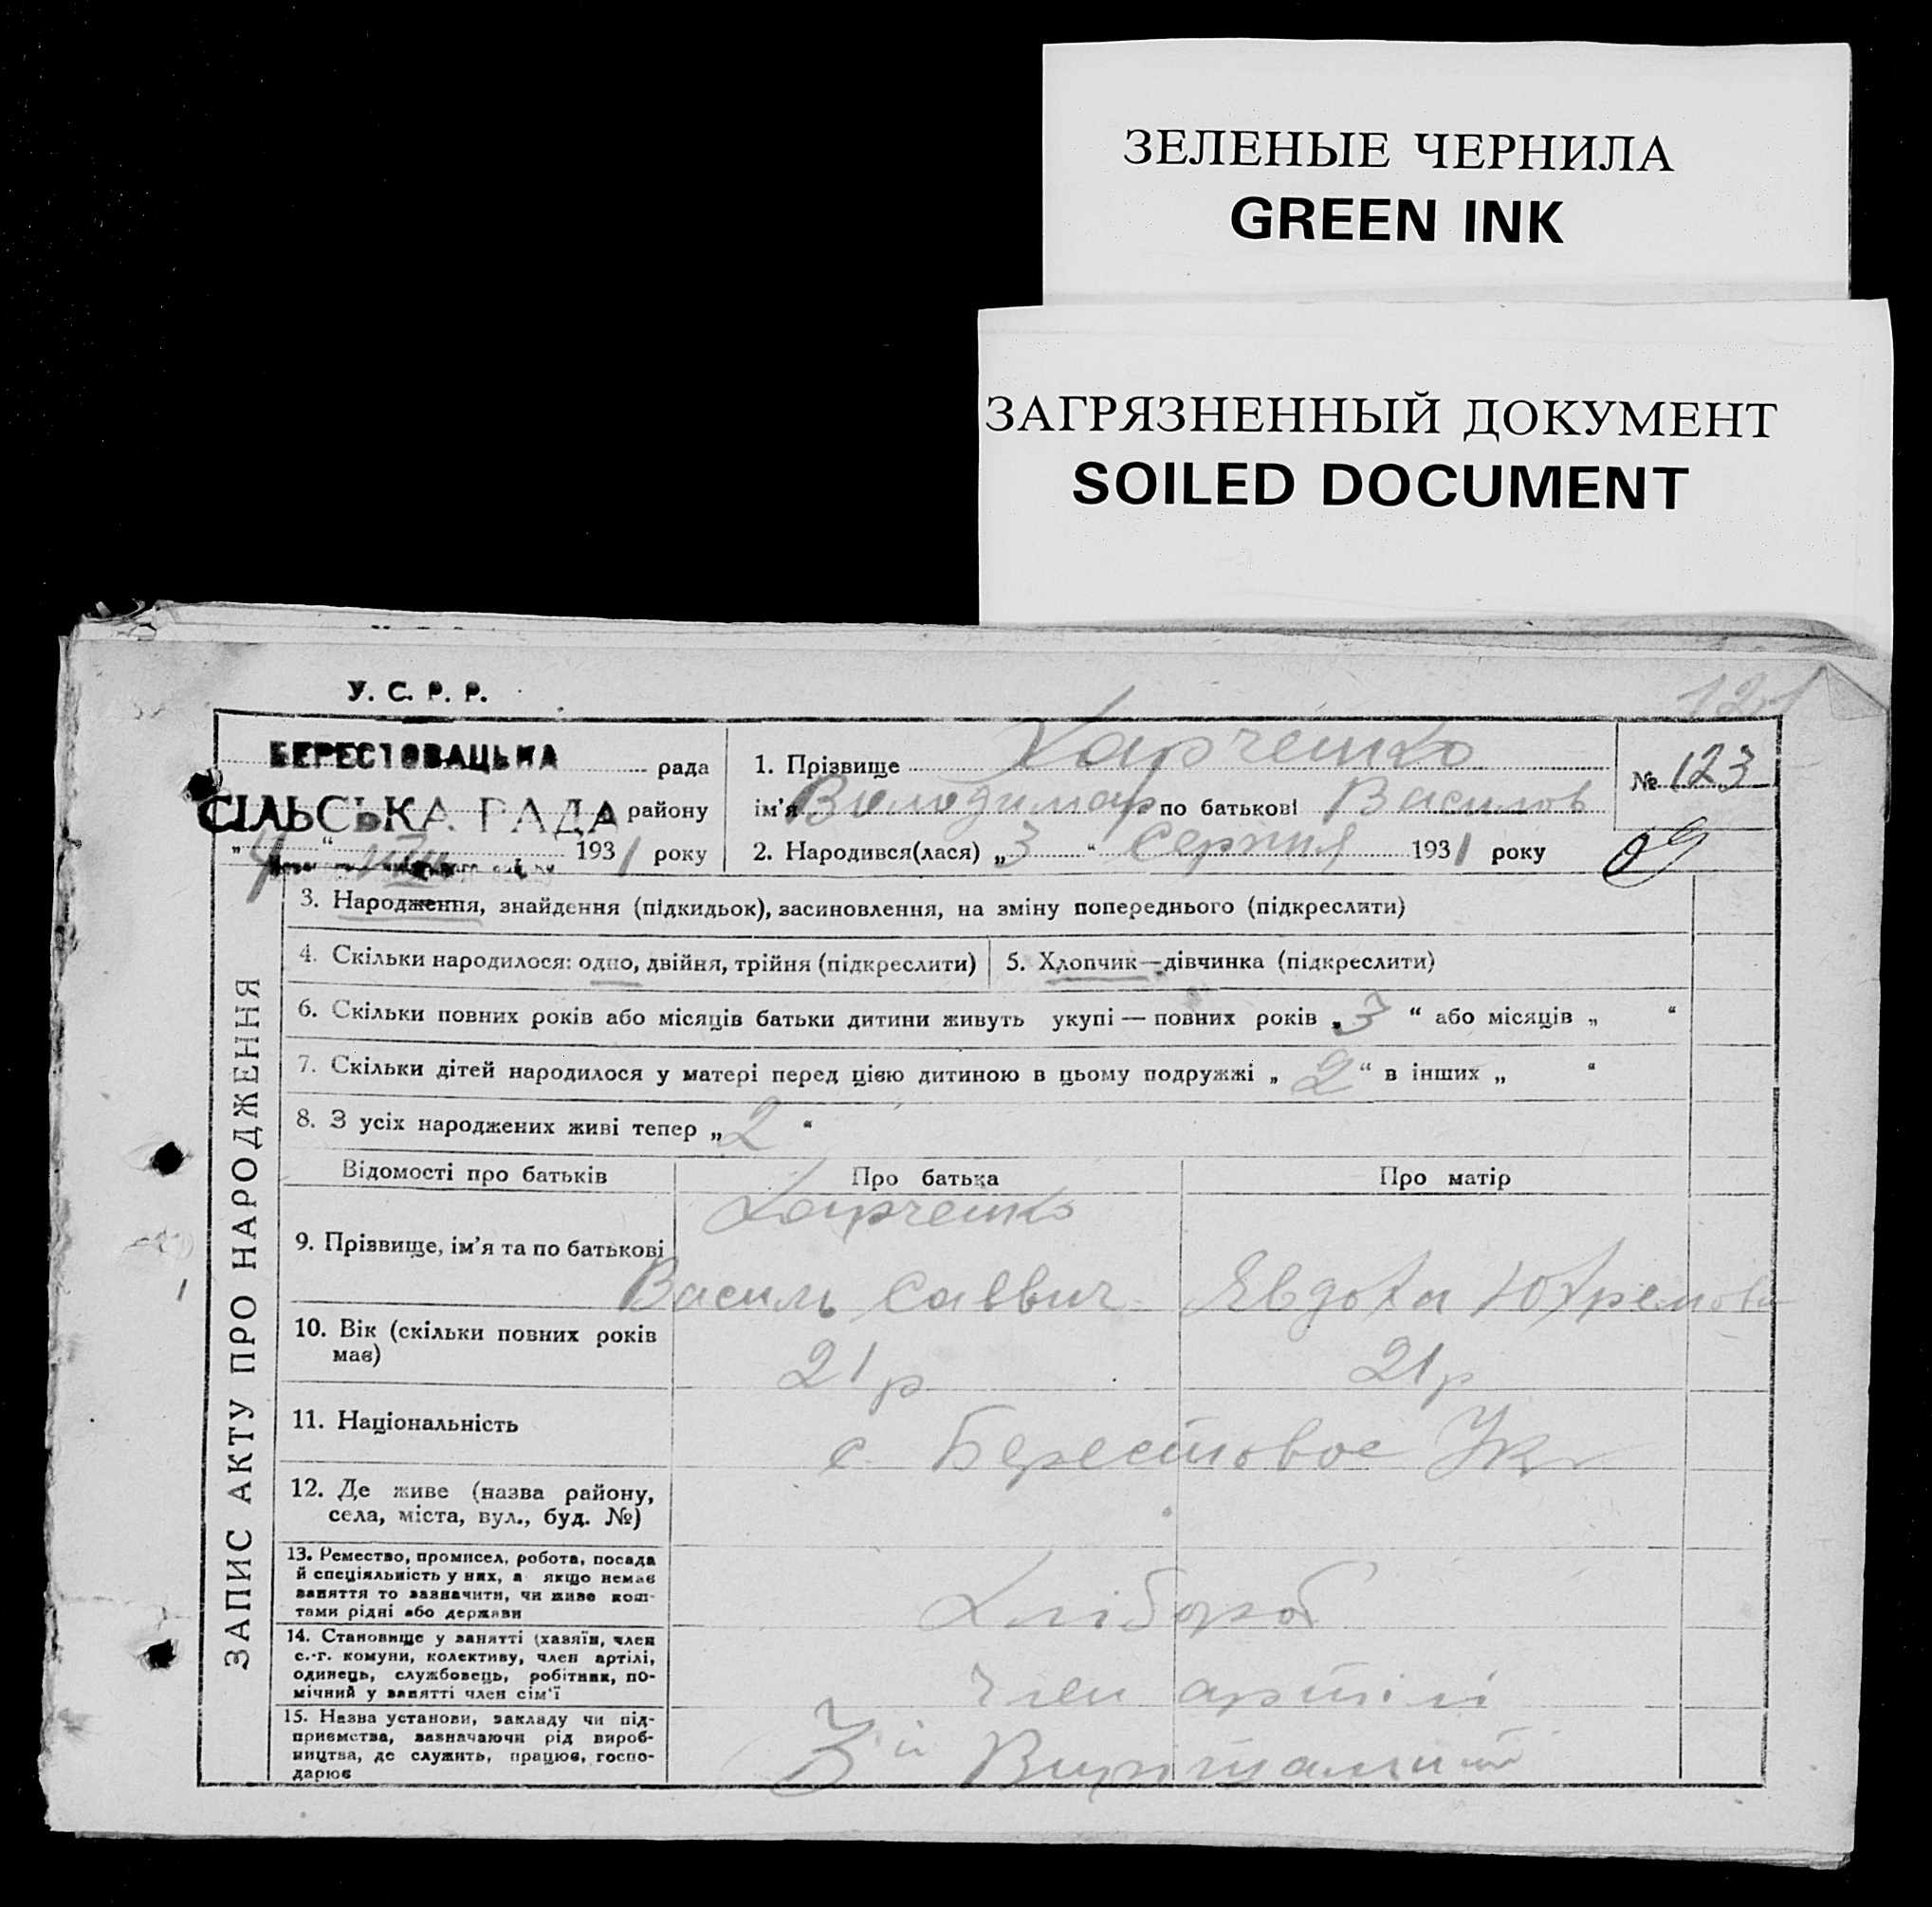 ЗЕЛЕНЫЕ ЧЕРНИЛА
GREEN INK
ЗАГРЯЗНЕННЫЙ ДОКУМЕНТ
SOILED DOCUMENT
У. С. Р. Р.
121
БЕРЕСТОВАЦЬКА рада
СІЛЬСЬКА РАДА району
„4“ 1931 року
1. Прізвище Харченко
ім'я Володимар по батькові Василов
2. Народився(лася) „3“ Серпня 1931 року
№ 123
09
ЗАПИС АКТУ ПРО НАРОДЖЕННЯ
3. Народження, знайдення (підкидьок), засиновлення, на зміну попереднього (підкреслити)
4. Скільки народилося: одно, двійня, трійня (підкреслити)
5. Хлопчик—дівчинка (підкреслити)
6. Скільки повних років або місяців батьки дитини живуть укупі — повних років „3“ або місяців „ “
7. Скільки дітей народилося у матері перед цією дитиною в цьому подружжі „2“ в інших „ “
8. З усіх народжених живі тепер „2“
Відомості про батьків Про батька Про матір
9. Прізвище, ім'я та по батькові
Харченко
Василь Саввич Явдоха Юхремовн
10. Вік (скільки повних років
має)
21 р 21 р
11. Національність
с. Берестовое Укр
12. Де живе (назва району,
села, міста, вул., буд. №)
13. Ремество, промисел, робота, посада
й спеціяльність у них, а якщо немає
заняття то зазначити, чи живе кош-
тами рідні або держави
Хлібороб
14. Становище у занятті (хазяїн, член
с.-г. комуни, колективу, член артілі,
одинець, службовець, робітник, по-
мічний у занятті член сім'ї
Член артілі
15. Назва установи, закладу чи під-
приємства, зазначаючи рід вироб-
ництва, де служить, працює, госпо-
дарює
3й Вирішальний